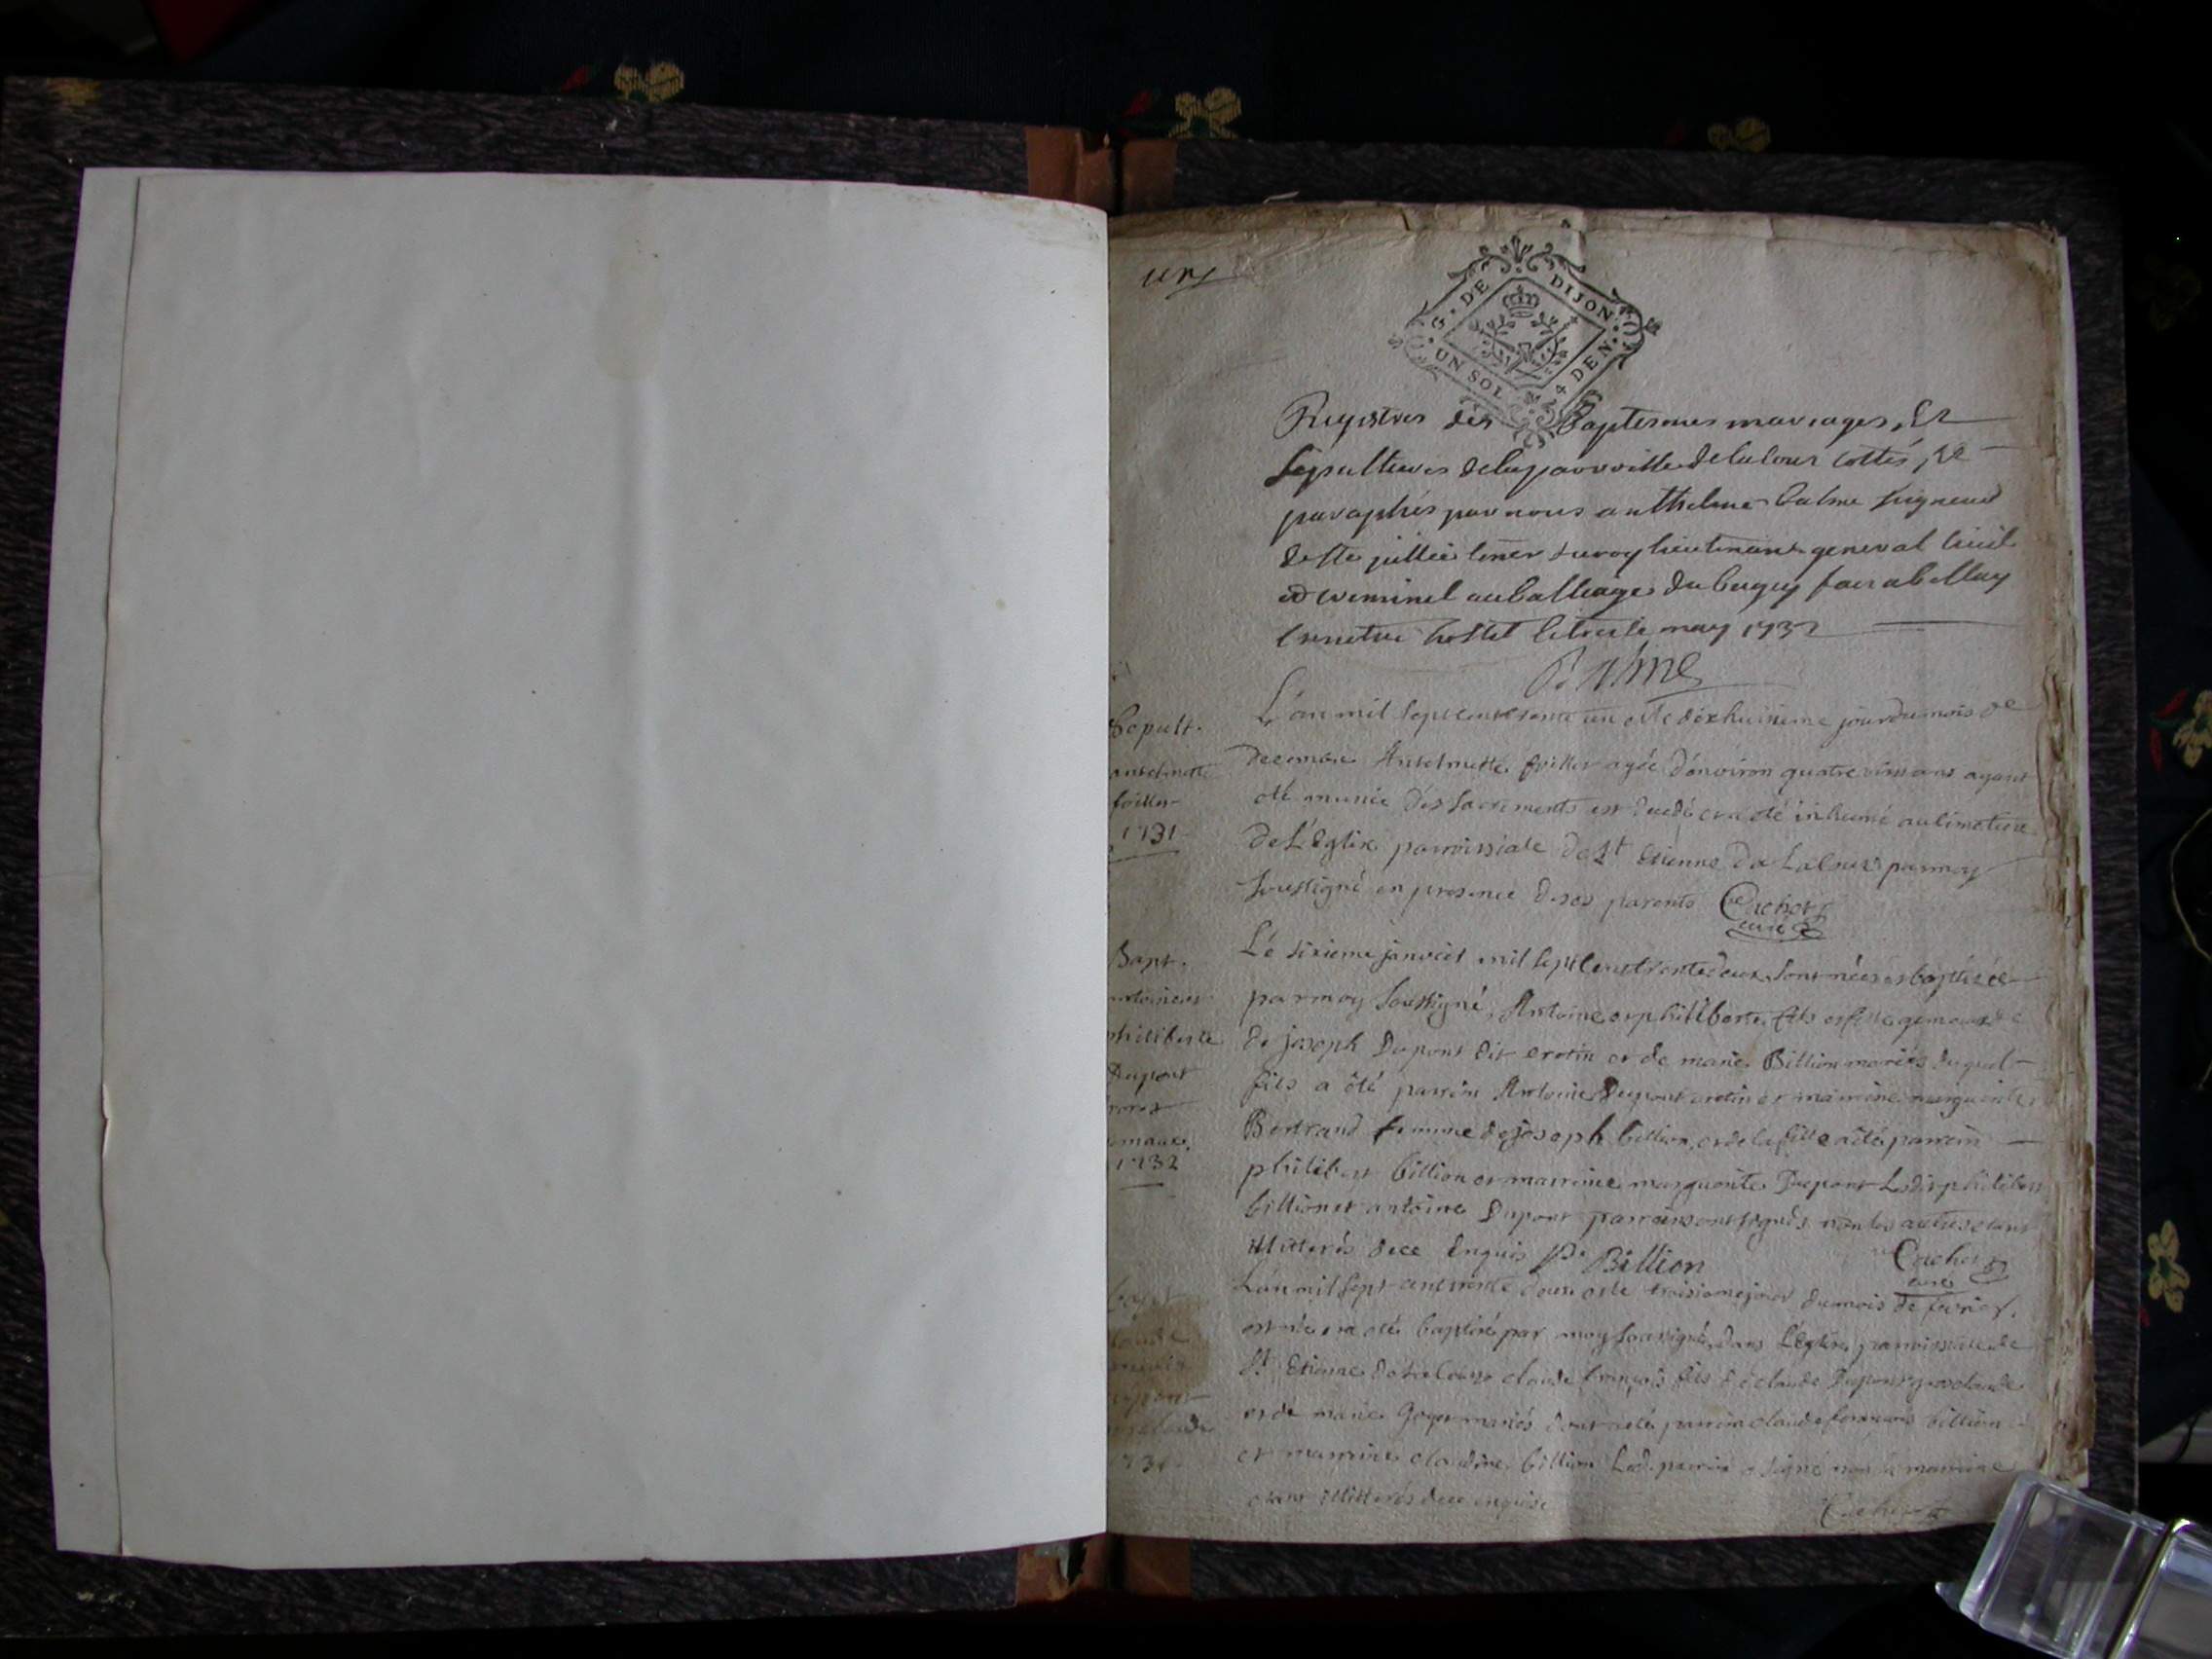 un
G. DE DIJON
UN SOL 4 DEN.
Registres des Baptesmes mariages, Et
sepultures delaparroisse delalour cottés, Et
paraphés par nous anthelme balme seigneur
de ste jullie coner duroy lieutenant general civil
et criminel auballiage du bugey
en notre hostel le may 1732
Balme
Sepult.
anselmette
1731
L'an mil sept cent trente un et le dixhuitieme jour du mois de
Decembre Anselmette agée d'environ quatre vint ans ayant
eté munie des sacrements est decedé et a eté inhumé au cimetiere
de L'Eglise parroissiale de St Etienne De Lalour par moy
soussigné en presence de ses parents Cuchet
curé
Bapt.
antoine et
philiberte
Dupont
1732
Le sixieme janvier mil sept cent trente deux sont nées et baptisées
par moy soussigné, Antoine et philiberte fils et fille gemeaux
de joseph Dupont dit cretin et de marie Billion mariés duquel
fils a été parrein Antoine Dupont cretin et marreine marguerite
Bertrand femme de joseph billion, et de la fille a été parrein
philibert billion et marreine marguerite Dupont Ledit philibert
billion et antoine Dupont parreins ont signés non les autres etant
illitterés de ce Enquis Ph. Billion Cuchet
curé
L'an mil sept cent trente deux et le troisieme jour du mois de fevrier
est né et a eté baptisé par moy soussigné, dans L'Eglise parroissiale de
St Etienne de Lalour claude françois fils de claude Dupont
et de marie Goyet mariés dont a eté parrein claude françois billion
et marreine claudine billion Led. parrein a signé non la marreine
etant illitterés de ce enquise
Cuchet